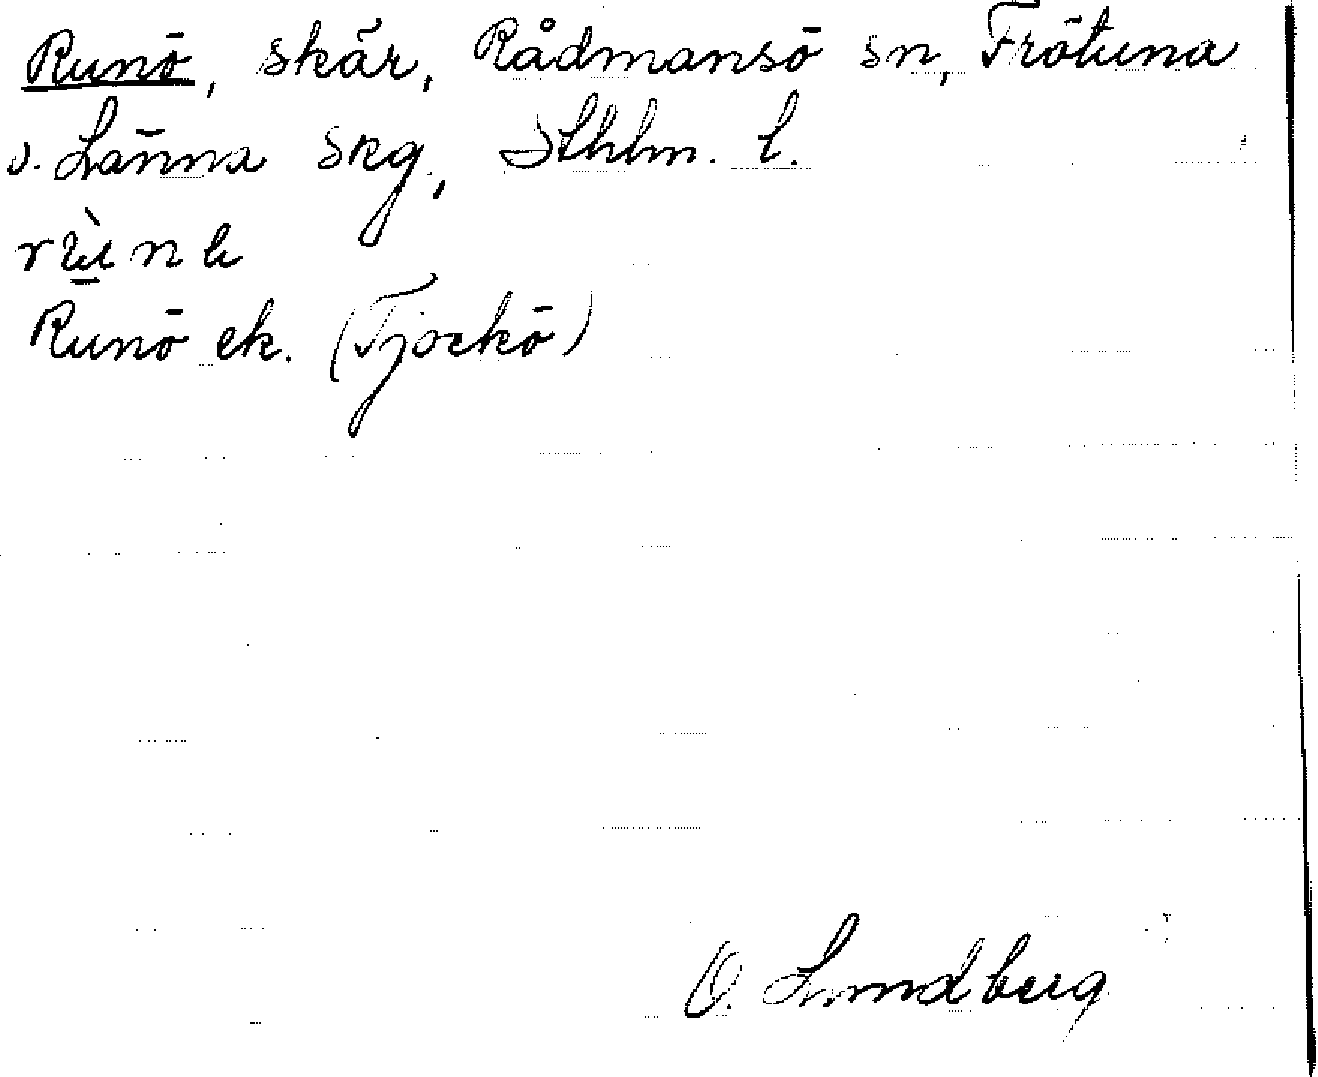 Runö, skär, Rådmansö sn, Frötuna
o. Länna skg, Sthlm. l.
Runö ek. (Tjockö)
O. Lundberg